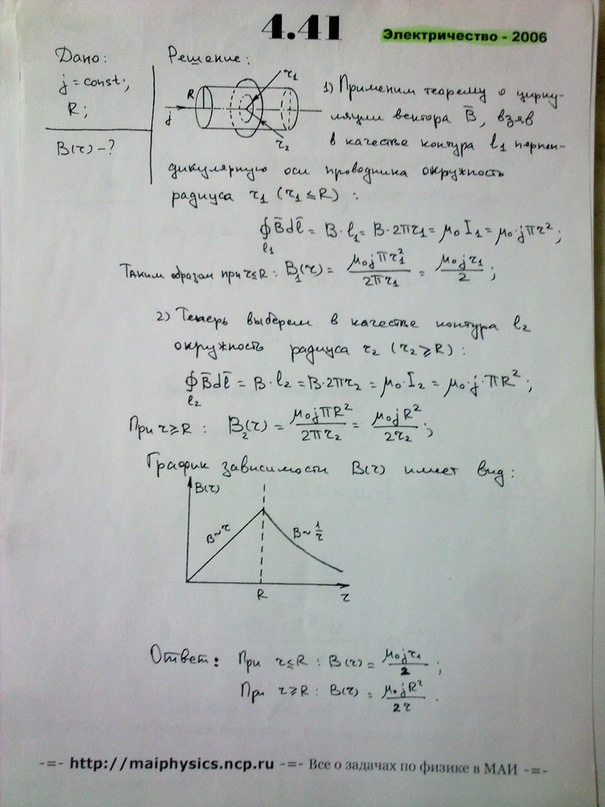 4.41
Электричество - 2006
Дано:
j = const;
R;
B(r) - ?
Решение:
R
j
r₁
r₂
1) Применим теорему о цирку-
ляции вектора B̄, взяв
в качестве контура l₁ перпен-
дикулярную оси проводника окружность
радиуса r₁ (r₁ ≤ R) :
∮B̄dl̄ = B·l₁ = B·2πr₁ = μ₀I₁ = μ₀·jπr²;
l₁
Таким образом при r≤R: B₁(r) = μ₀jπr₁²/2πr₁ = μ₀jr₁/2;
2) Теперь выберем в качестве контура l₂
окружность радиуса r₂ (r₂ ≥ R) :
∮B̄dl̄ = B·l₂ = B·2πr₂ = μ₀·I₂ = μ₀·j·πR²;
l₂
При r≥R : B₂(r) = μ₀jπR²/2πr₂ = μ₀jR²/2r₂;
График зависимости B(r) имеет вид:
B(r)
B~r
B~1/r
R
r
Ответ: При r≤R : B(r) = μ₀jr₁/2 ;
При r≥R : B(r) = μ₀jR²/2r .
-=- http://maiphysics.ncp.ru -=- Все о задачах по физике в МАИ -=-